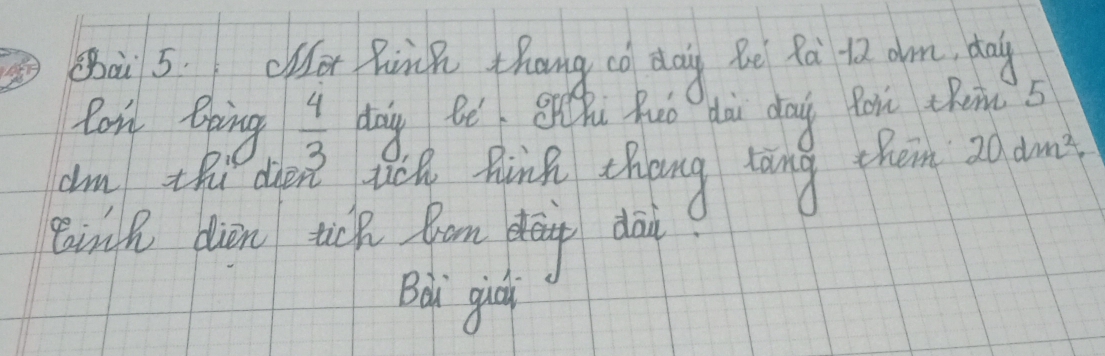 Bài 5: Một hình thang có đáy bé là 12 dm, đáy
lớn bằng 4/3 đáy bé. Khi kéo dài đáy lớn thêm 5
dm thì diện tích hình thang tăng thêm 20 dm².
Tính diện tích ban đầu
Bài giải